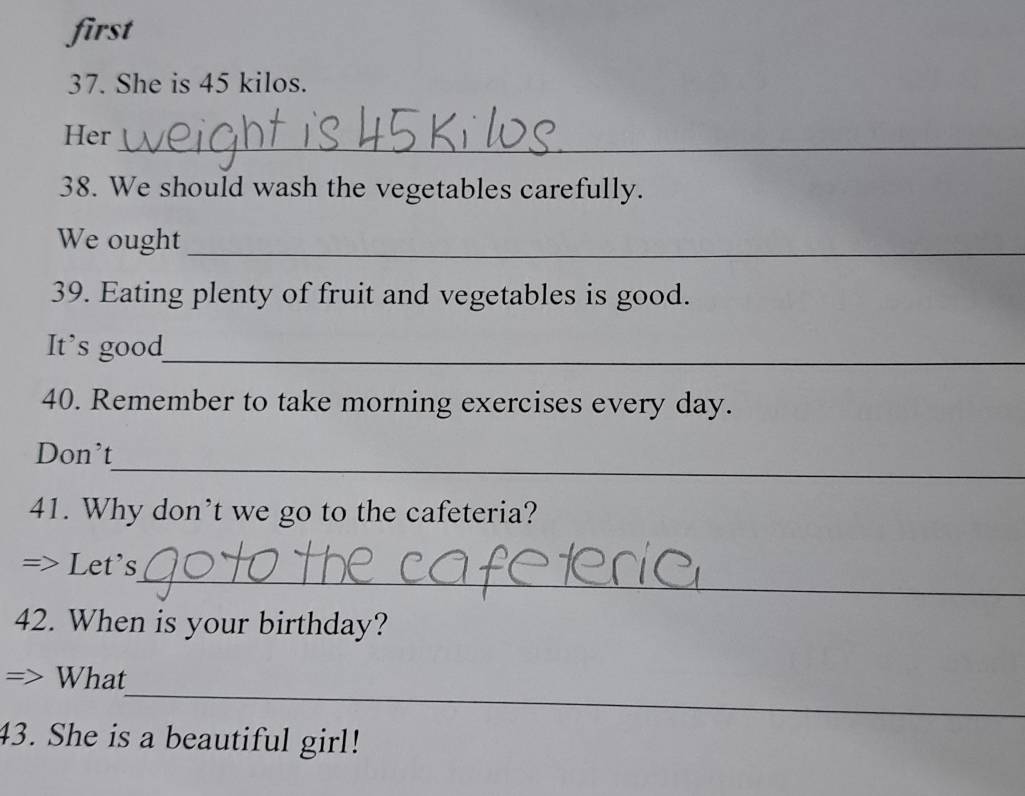 first
37. She is 45 kilos.
Her weight is 45 kilos.
38. We should wash the vegetables carefully.
We ought
39. Eating plenty of fruit and vegetables is good.
It's good
40. Remember to take morning exercises every day.
Don't
41. Why don't we go to the cafeteria?
=> Let's go to the cafeteria
42. When is your birthday?
=> What
43. She is a beautiful girl!